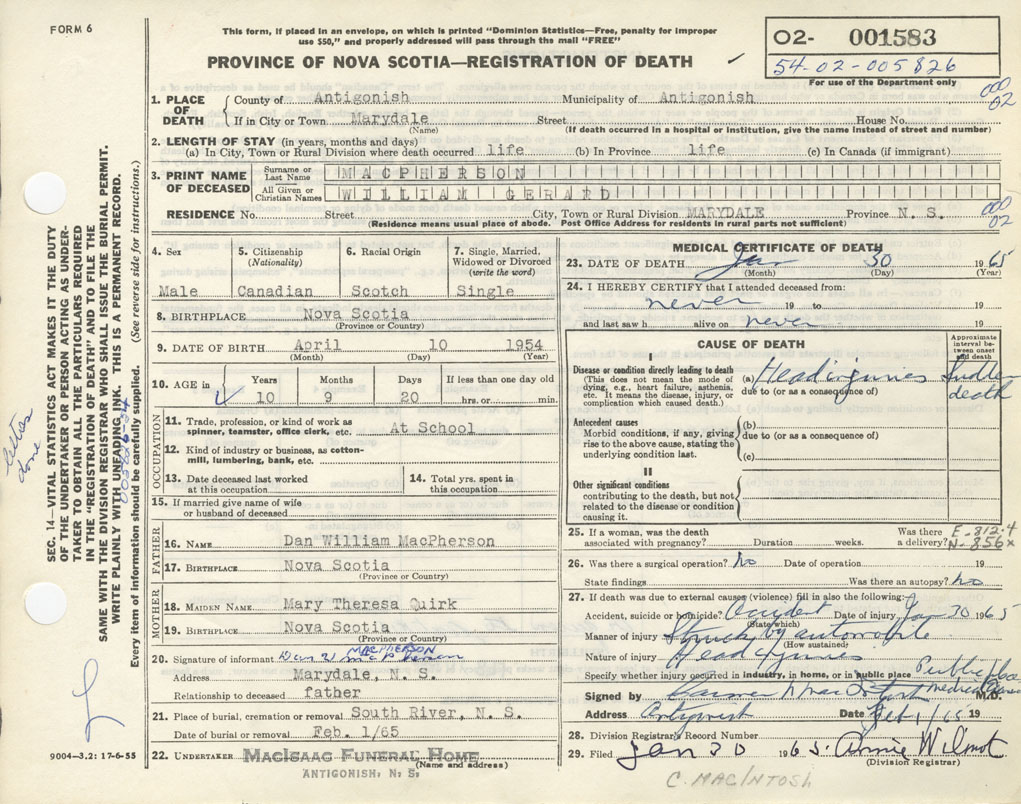 FORM 6
This form, if placed in an envelope, on which is printed "Dominion Statistics—Free, penalty for improper
use $50," and properly addressed will pass through the mail "FREE"
PROVINCE OF NOVA SCOTIA—REGISTRATION OF DEATH
02- 001583
54-02-005826
For use of the Department only
1. PLACE OF DEATH
County of Antigonish Municipality of Antigonish
If in City or Town Marydale Street House No.
(Name) (If death occurred in a hospital or institution, give the name instead of street and number)
000
02
2. LENGTH OF STAY (in years, months and days)
(a) In City, Town or Rural Division where death occurred life (b) In Province life (c) In Canada (if immigrant)
3. PRINT NAME OF DECEASED
Surname or Last Name MACPHERSON
All Given or Christian Names WILLIAM GERARD
RESIDENCE No. Street City, Town or Rural Division MARYDALE Province N. S.
(Residence means usual place of abode. Post Office Address for residents in rural parts not sufficient)
000
02
4. Sex
Male
5. Citizenship (Nationality)
Canadian
6. Racial Origin
Scotch
7. Single, Married, Widowed or Divorced (write the word)
Single
8. BIRTHPLACE Nova Scotia
(Province or Country)
9. DATE OF BIRTH April 10 1954
(Month) (Day) (Year)
10. AGE in Years Months Days If less than one day old
10 9 20 hrs. or min.
OCCUPATION
11. Trade, profession, or kind of work as spinner, teamster, office clerk, etc. At School
12. Kind of industry or business, as cotton-mill, lumbering, bank, etc.
13. Date deceased last worked at this occupation
14. Total yrs. spent in this occupation
15. If married give name of wife or husband of deceased
FATHER
16. NAME Dan William MacPherson
17. BIRTHPLACE Nova Scotia
(Province or Country)
MOTHER
18. MAIDEN NAME Mary Theresa Quirk
19. BIRTHPLACE Nova Scotia
(Province or Country)
MACPHERSON
20. Signature of informant Dan W McPherson
Address Marydale, N. S.
Relationship to deceased father
21. Place of burial, cremation or removal South River, N. S.
Date of burial or removal Feb. 1/65
22. UNDERTAKER MACISAAC FUNERAL HOME
(Name and address)
ANTIGONISH, N. S.
MEDICAL CERTIFICATE OF DEATH
23. DATE OF DEATH Jan 30 1965
(Month) (Day) (Year)
24. I HEREBY CERTIFY that I attended deceased from:
never 19 to 19
and last saw h alive on never 19
CAUSE OF DEATH
Approximate interval between onset and death
I
Disease or condition directly leading to death
(This does not mean the mode of dying, e.g., heart failure, asthenia, etc. It means the disease, injury, or complication which caused death.)
(a) Head injuries
death
due to (or as a consequence of)
Antecedent causes
Morbid conditions, if any, giving rise to the above cause, stating the underlying condition last.
(b)
due to (or as a consequence of)
(c)
II
Other significant conditions
contributing to the death, but not related to the disease or condition causing it.
25. If a woman, was the death associated with pregnancy? Duration weeks. Was there a delivery?
E-812.4
N-856x
26. Was there a surgical operation? No Date of operation
State findings Was there an autopsy? No
27. If death was due to external causes (violence) fill in also the following:
Accident, suicide or homicide? Accident Date of injury Jan 30 1965
(State which)
Manner of injury Struck by automobile
(How sustained)
Nature of injury Head injuries
Specify whether injury occurred in industry, in home, or in public place Public place
Signed by M.D.
Address Antigonish Date Feb 1/65 19
28. Division Registrar's Record Number
29. Filed Jan 30 1965. Annie Wilmot
(Division Registrar)
C. MACINTOSH
SEC. 14—VITAL STATISTICS ACT MAKES IT THE DUTY
OF THE UNDERTAKER OR PERSON ACTING AS UNDER-
TAKER TO OBTAIN ALL THE PARTICULARS REQUIRED
IN THE "REGISTRATION OF DEATH" AND TO FILE THE
SAME WITH THE DIVISION REGISTRAR WHO SHALL ISSUE THE BURIAL PERMIT.
WRITE PLAINLY WITH UNFADING INK. THIS IS A PERMANENT RECORD.
Every item of information should be carefully supplied. (See reverse side for instructions.)
done
9004—3.2: 17-6-55